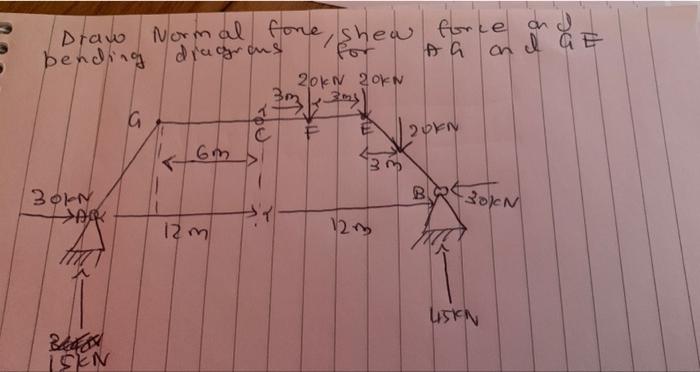 Draw Normal force, shear force and
bending diagrams for AG and GE
20kN 20kN
3m 3m
G C F E
20kN
6m 3m
30kN A B 30kN
12m 12m
45kN
15kN